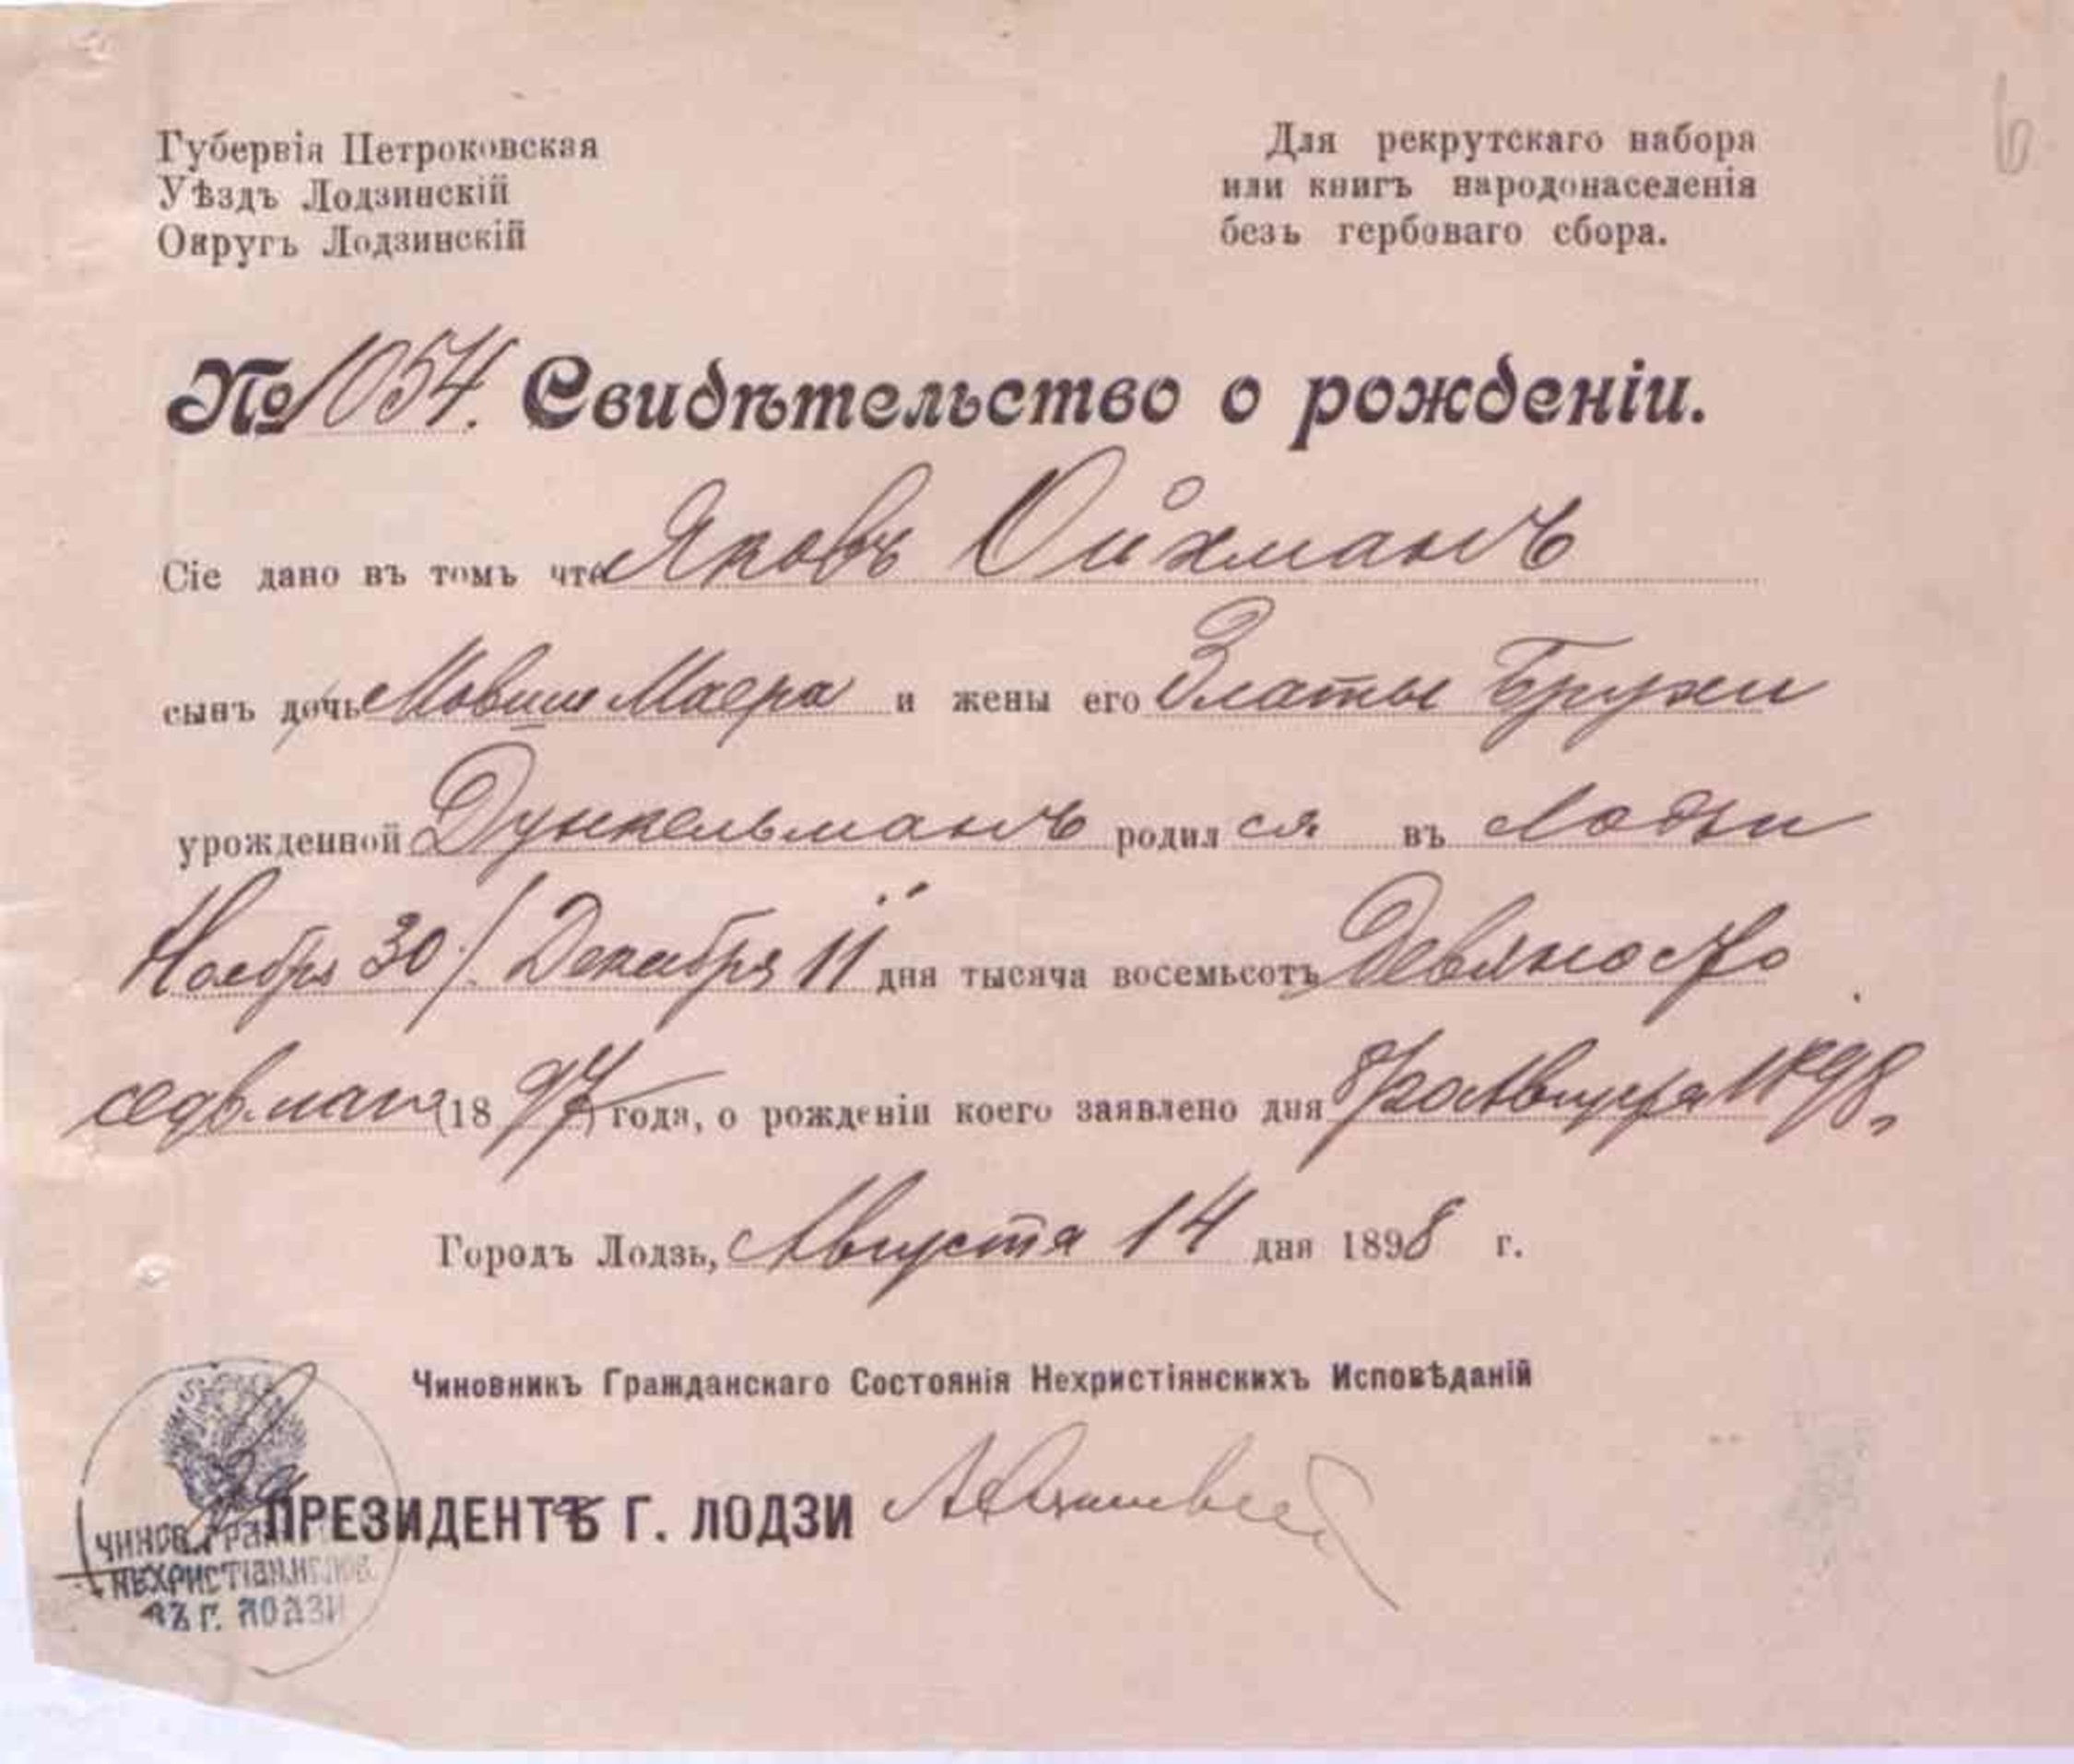 Губернія Петроковская
Уѣздъ Лодзинскій
Округъ Лодзинскій
Для рекрутскаго набора
или книгъ народонаселенія
безъ гербоваго сбора.
№ 1054. Свидѣтельство о рожденіи.
Сіе дано въ томъ что Яковъ Ойхманъ
сынъ дочь Мовши Маера и жены его Златы Брухи
урожденной Дункельманъ родился въ Лодзи
Ноября 30 / Декабря 11 дня тысяча восемьсотъ девяносто
седьмаго (1897) года, о рожденіи коего заявлено дня 8/20 Августа 1898
Городъ Лодзь, Августа 14 дня 1898 г.
Чиновникъ Гражданскаго Состоянія Нехристіянскихъ Исповѣданій
ПРЕЗИДЕНТЪ Г. ЛОДЗИ
ЧИНОВ. ГРАЖ
НЕХРИСТІАН.ИСПОВ.
ВЪ Г. ЛОДЗИ